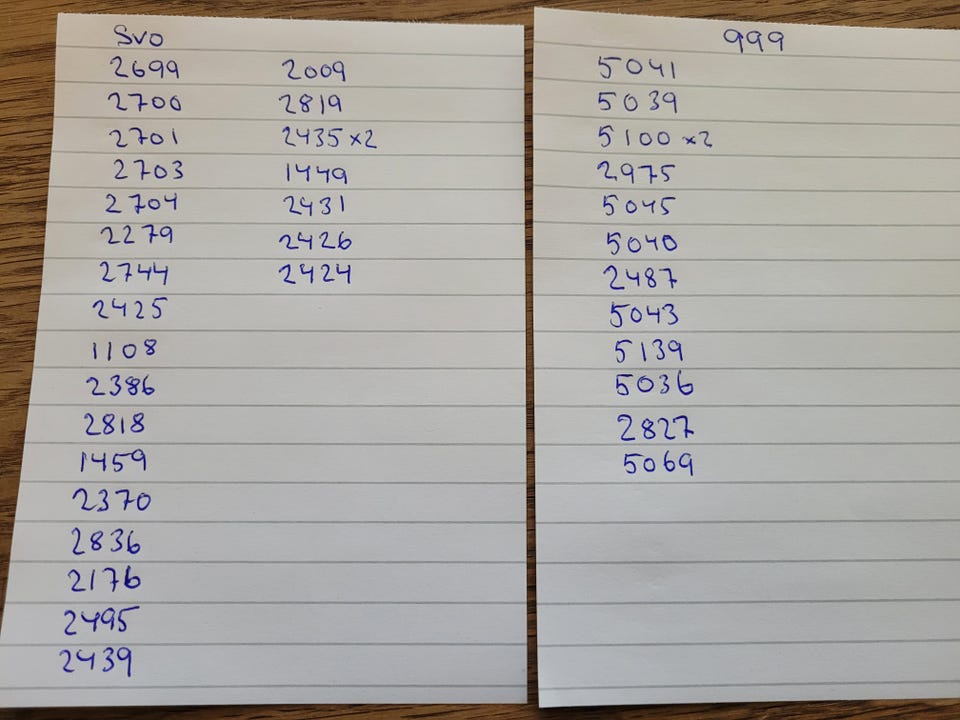 Svo
2699
2700
2701
2703
2704
2279
2744
2425
1108
2386
2818
1459
2370
2836
2176
2495
2439
2009
2819
2435 x2
1449
2431
2426
2424
999
5041
5039
5100 x2
2975
5045
5040
2487
5043
5139
5036
2827
5069